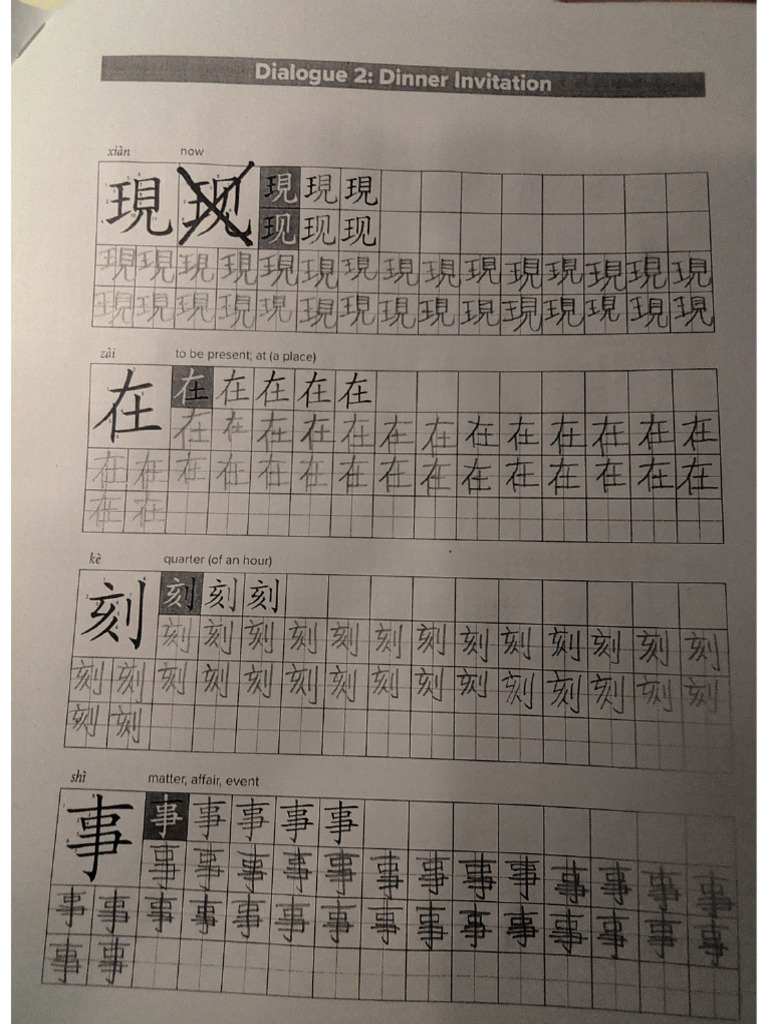 Dialogue 2: Dinner Invitation
xiàn now
現 现 現 現 現
现 现 现
現 現 現 現 現 現 現 現 現 現 現 現 現 現 現
現 現 現 現 現 現 現 現 現 現 現 現 現 現 現
zài to be present; at (a place)
在 在 在 在 在 在
在 在 在 在 在 在 在 在 在 在 在 在 在
在 在 在 在 在 在 在 在 在 在 在 在 在 在 在
在 在
kè quarter (of an hour)
刻 刻 刻 刻
刻 刻 刻 刻 刻 刻 刻 刻 刻 刻 刻 刻 刻
刻 刻 刻 刻 刻 刻 刻 刻 刻 刻 刻 刻 刻 刻 刻
刻 刻
shì matter, affair, event
事 事 事 事 事 事
事 事 事 事 事 事 事 事 事 事 事 事 事
事 事 事 事 事 事 事 事 事 事 事 事 事 事 事
事 事